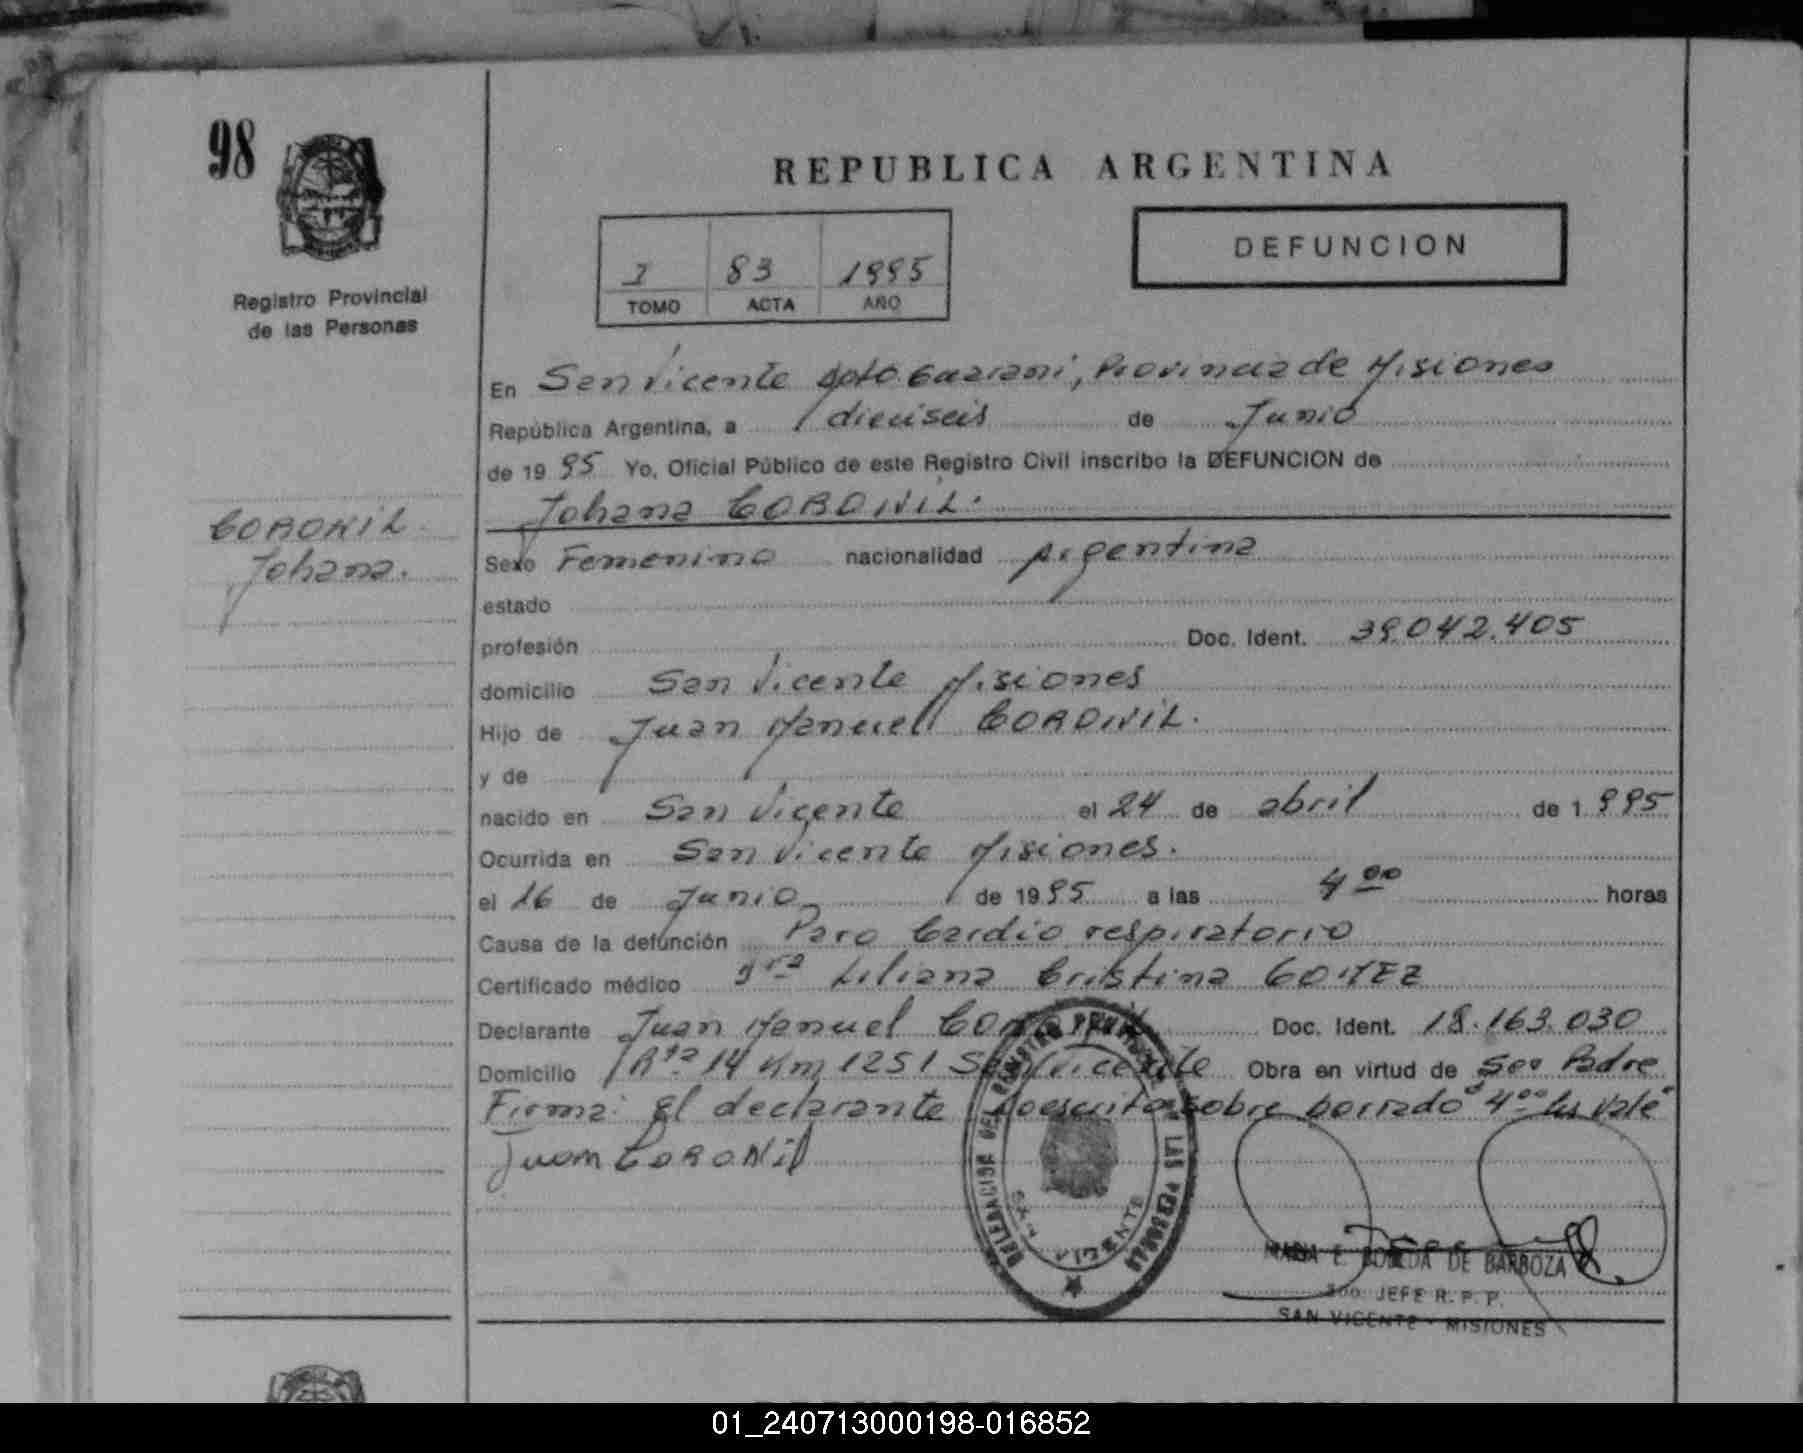 98
REPUBLICA ARGENTINA
DEFUNCION
I 83 1995
TOMO ACTA AÑO
Registro Provincial
de las Personas
En San Vicente Dpto. Guarani, Provincia de Misiones
República Argentina, a dieciseis de Junio
de 19 95 Yo, Oficial Público de este Registro Civil inscribo la DEFUNCION de
Johana CORONIL.
CORONIL
Johana.
Sexo Femenino nacionalidad Argentina
estado
profesión Doc. Ident. 39.042.405
domicilio San Vicente Misiones
Hijo de Juan Manuel CORONIL.
y de
nacido en San Vicente el 24 de abril de 1 995
Ocurrida en San Vicente Misiones.
el 16 de Junio de 19 95 a las 4 00 horas
Causa de la defunción Paro Cardio respiratorio
Certificado médico Dra Liliana Cristina GOMEZ
Declarante Juan Manuel CORONIL Doc. Ident. 18.163.030
Domicilio Rta 14 Km 1251 San Vicente Obra en virtud de ser Padre
Firma: El declarante sobre borrado "4 00 hs Vale"
Juan CORONil
DELEGACION DEL REGISTRO PROVINCIAL DE LAS PERSONAS
SAN VICENTE
MARIA E. DE BARBOZA
JEFE R. P. P.
SAN VICENTE - MISIONES
01_240713000198-016852